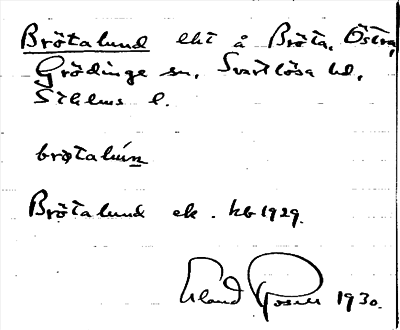 Brötalund lht å Bröta, Östra,
Grödinge sn, Svartlösa hd,
Sthlms l.
brøtalún
Brötalund ek. hb 1929.
Erland Rosell 1930.